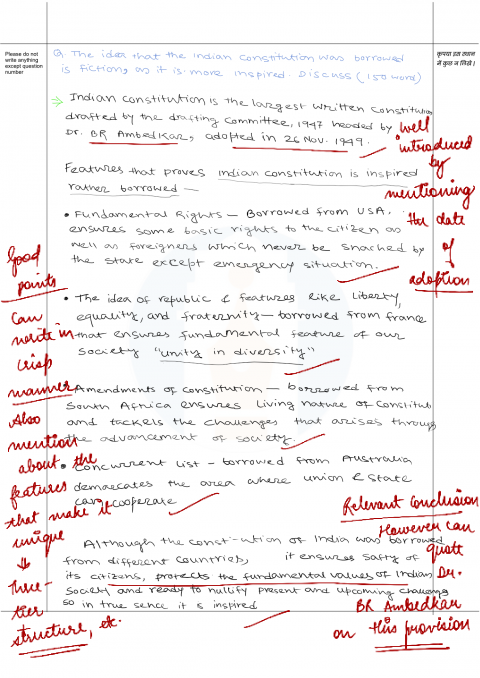 Please do not
write anything
except question
number
कृपया इस स्थान
में कुछ न लिखें।
Q. The idea that the Indian Constitution was borrowed
is fiction, as it is more inspired. Discuss (150 word)
→ Indian constitution is the largest written Constitution
drafted by the drafting Committee, 1947 headed by
Dr. BR Ambedkar, adopted in 26 Nov. 1949.
well
introduced
by
mentioning
the date
of
adoption
Features that proves indian constitution is inspired
rather borrowed —
• Fundamental Rights — Borrowed from USA.
ensures some basic rights to the citizen as
well as foreigners which never be snached by
the state except emergency situation.
• The idea of republic & features like liberty,
equality, and fraternity — borrowed from france
that ensures fundamental feature of our
society "unity in diversity"
Amendments of constitution — borrowed from
South Africa ensures Living nature of Constituti
and tackels the challenges that arises through
the advancement of society.
• Concurrent list — borrowed from Australia
demarcates the area where union & state
can cooperate
Good
points
Can
write in
crisp
manner
Also
mention
about the
features
that make it
unique
↓
three-
tier
structure, etc.
Although the const-ution of India was borrowed
from different countries, it ensures safty of
its citizens, protects the fundamental values of Indian
society and ready to nullify present and upcoming challenges
so in true sence it is inspired
Relevant Conclusion
However can
quote
Dr.
BR Ambedkar
on this provision